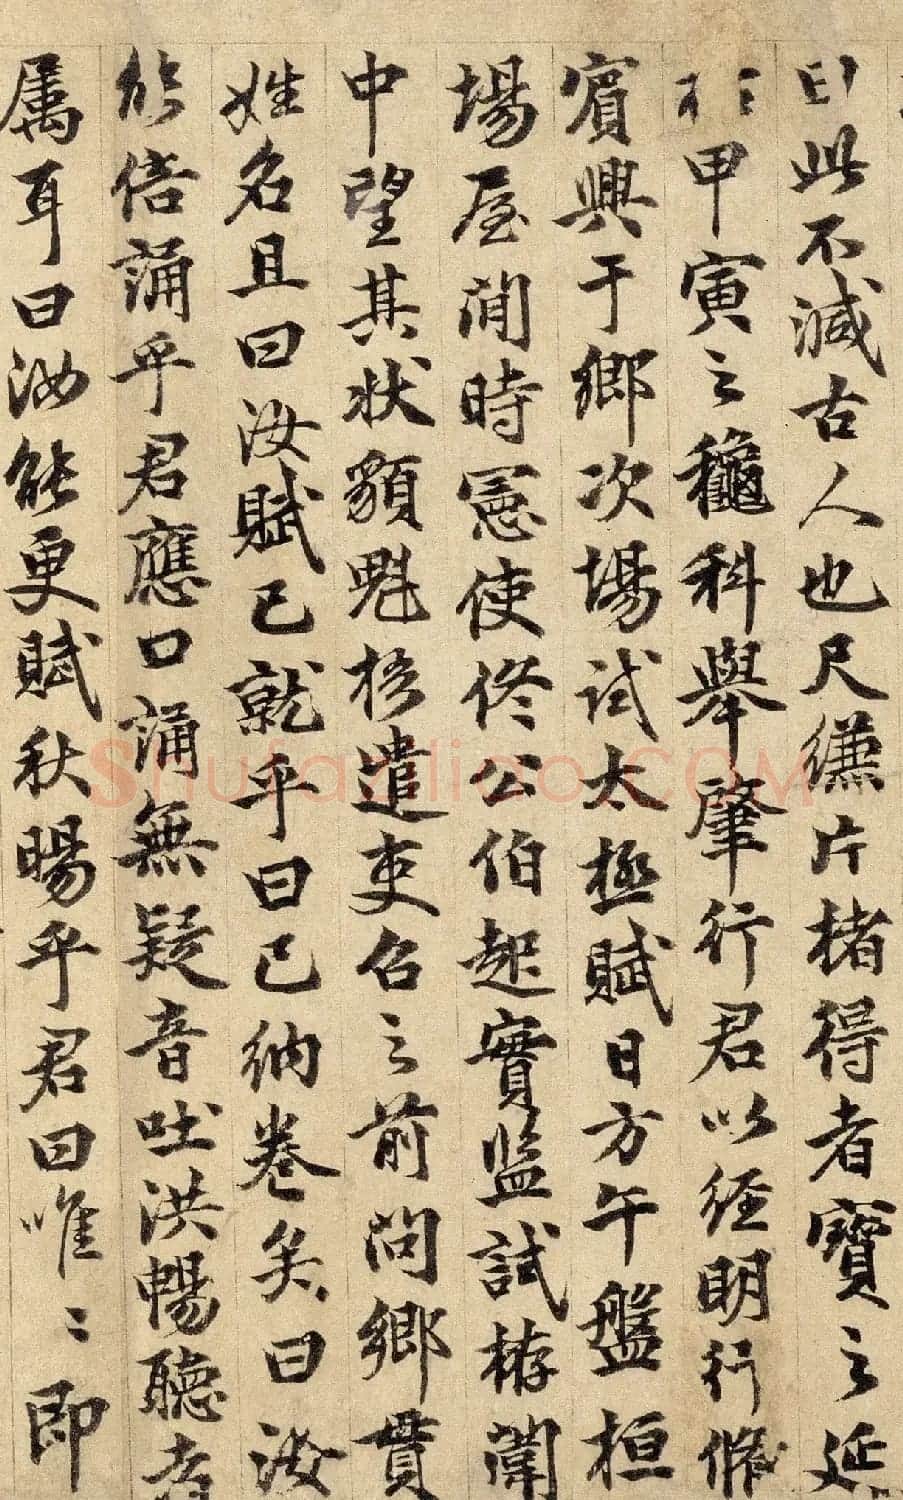 此不減古人也尺縑片楮得者寶之延
甲寅之龝科舉肇行君以經明行脩
賓興于鄉次場試太極賦日方午盤桓
場屋間時憲使佟公伯起實監試棘闈
中望其狀貌魁梧遣吏召之前問鄉貫
姓名且曰汝賦已就乎曰已納卷矣曰汝
能倍誦乎君應口誦無疑音吐洪暢聽者
属耳曰汝能更賦秋暘乎君曰唯〻即
Shufaziliao.COM